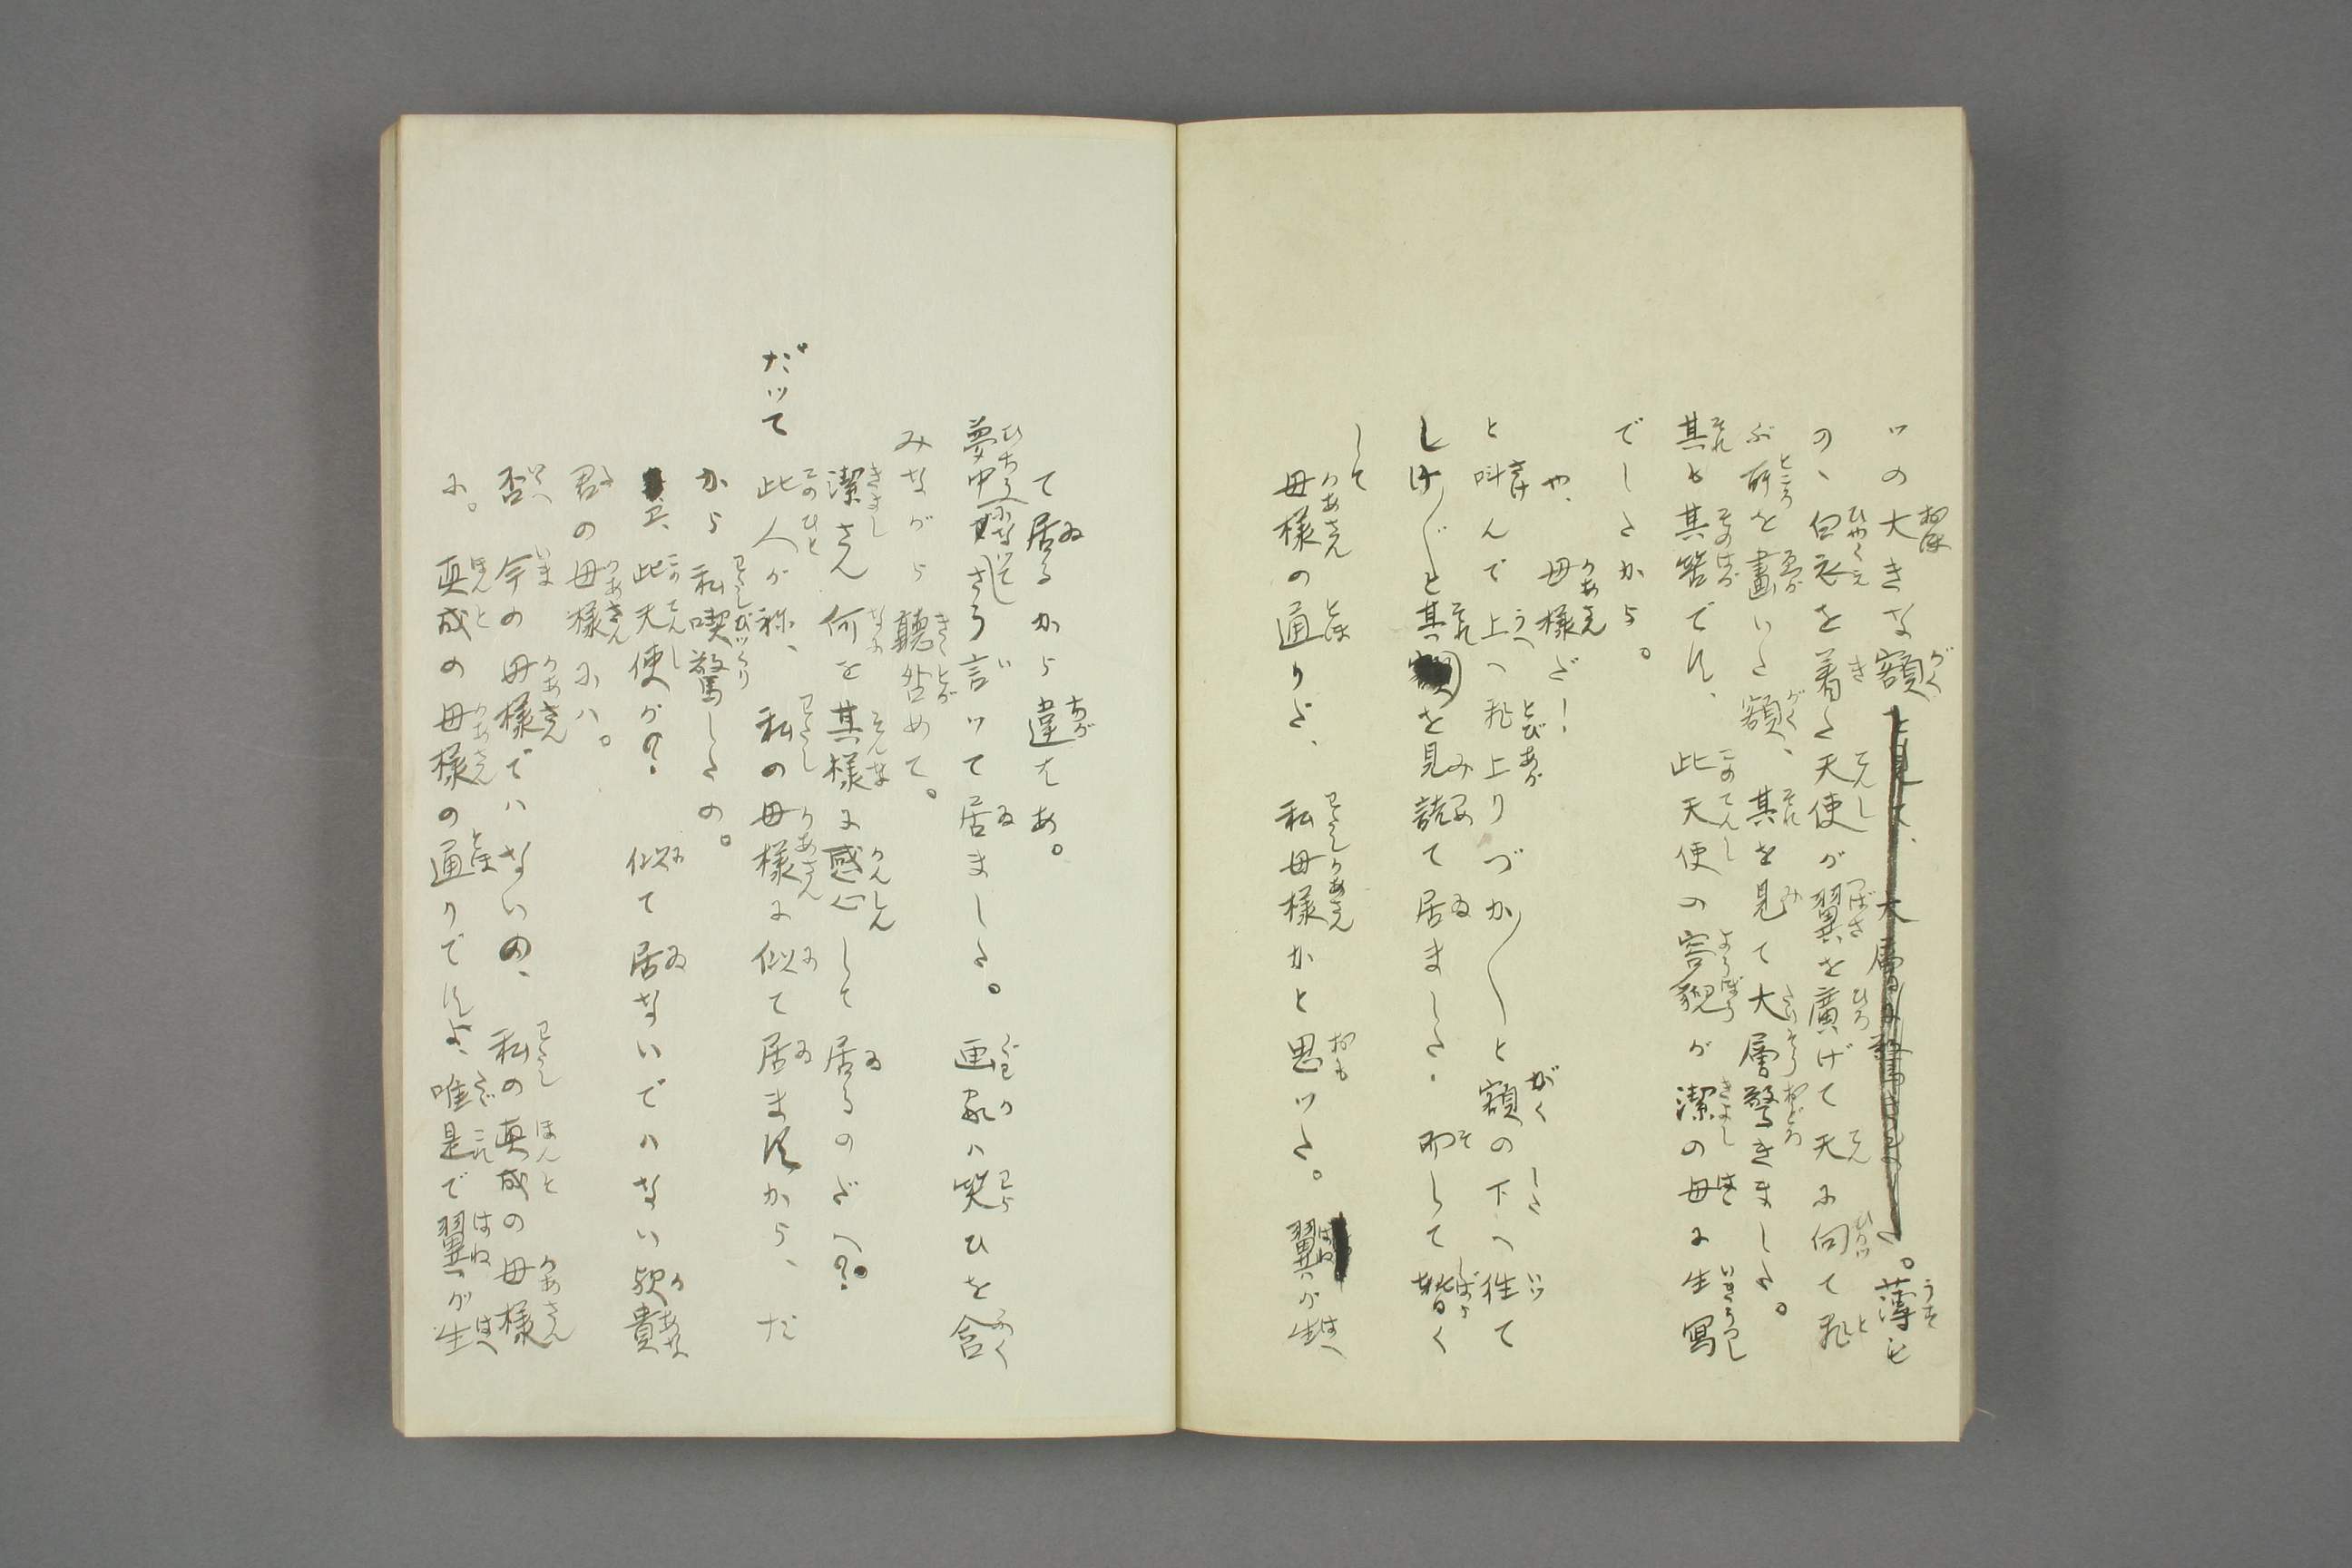 ツの大きな額を見て、大層に驚きました。薄も
の、白衣を着た天使が翼を廣げて天に向て飛
ぶ所を畫いた額、其を見て大層驚きました。
其も其筈です、此天使の容貌が潔の母に生寫
でしたから。
や、母樣だ!
と叫んで上へ飛上りづか〱と額の下へ往て
しげ〲と其額を見詰て居ました。而して暫く
して
母樣の通りだ、私母樣かと思ツた。翼が生
て居るから違はあ。
夢中に獨さう言ツて居ました。画家ハ笑ひを含
みながら聽咎めて。
潔さん何を其樣に感心して居るのだへ?
だツて此人が稱、私の母樣に似て居ますから、だ
から私喫驚したの。
ヱ、此天使が?似て居ないでハない歟貴
君の母樣にハ。
否今の母樣でハないの、私の真成の母樣
に。真成の母樣の通りですよ、唯是で翼が生